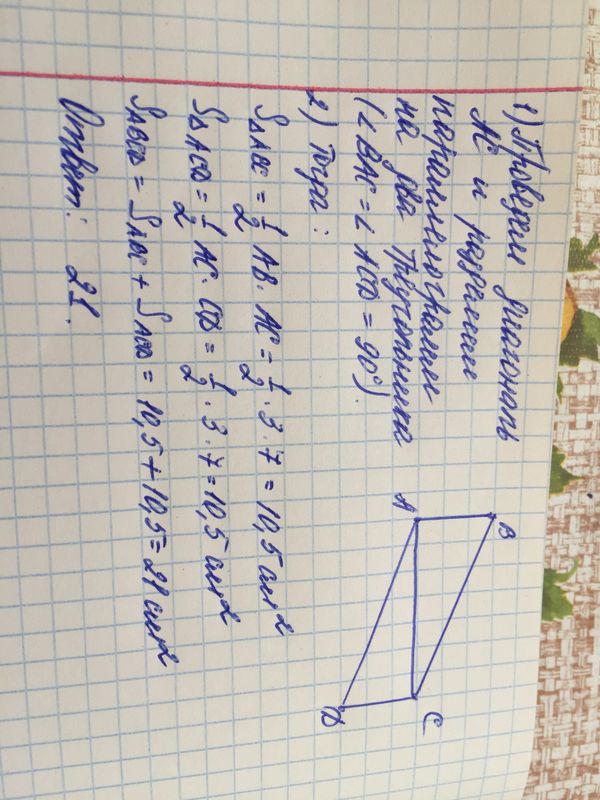 1) Проведём диагональ
AC и разделим
параллелограмм
на два треугольника
(∠BAC = ∠ACD = 90°).
2) Тогда:
S△ABC = 1/2 AB · AC = 1/2 · 3 · 7 = 10,5 см2
S△ACD = 1/2 AC · CD = 1/2 · 3 · 7 = 10,5 см2
SABCD = SABC + SACD = 10,5 + 10,5 = 21 см2
Ответ: 21.
B
A
C
D